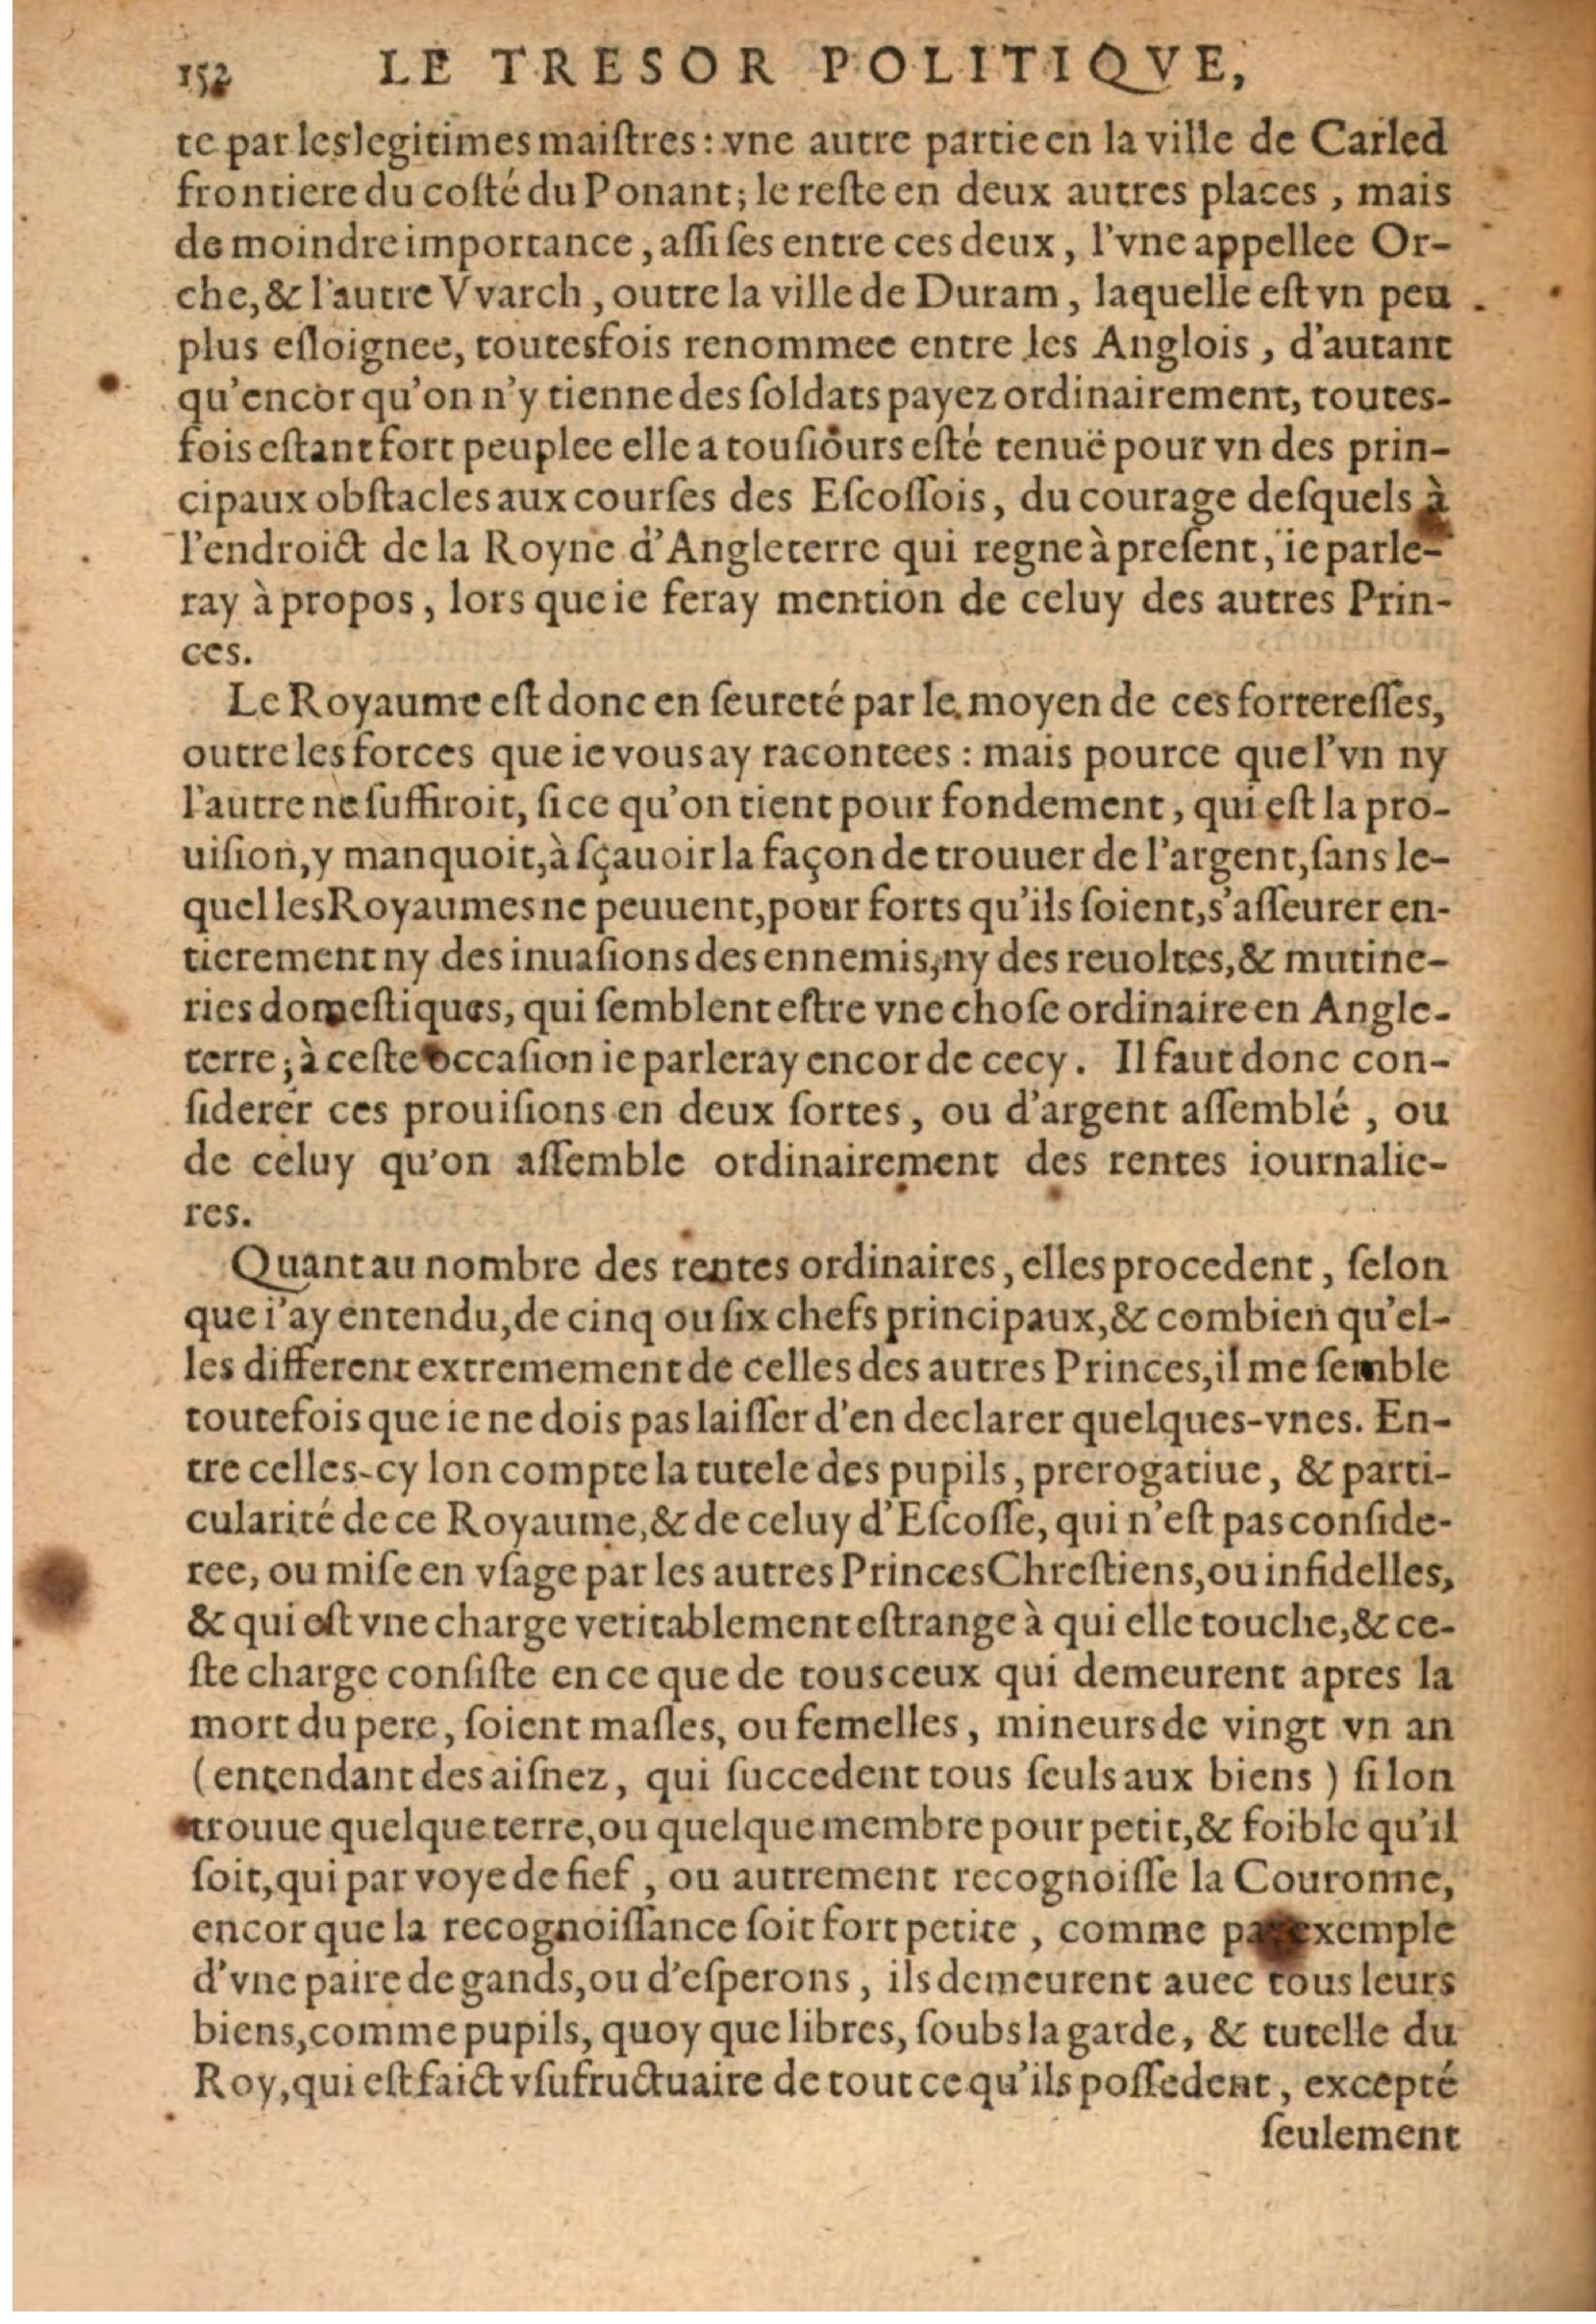 152 LE TRESOR POLITIQVE,
te par les legitimes maiſtres : vne autre partie en la ville de Carled
frontiere du coſté du Ponant ; le reſte en deux autres places , mais
de moindre importance , aſſiſes entre ces deux , l'vne appellee Or-
che, & l'autre Vvarch , outre la ville de Duram , laquelle eſt vn peu
plus eſloignee, toutesfois renommee entre les Anglois , d'autant
qu'encor qu'on n'y tienne des ſoldats payez ordinairement, toutes-
fois eſtant fort peuplee elle a touſiours eſté tenuë pour vn des prin-
cipaux obſtacles aux courſes des Eſcoſſois, du courage deſquels à
l'endroict de la Royne d'Angleterre qui regne à preſent, ie parle-
ray à propos , lors que ie feray mention de celuy des autres Prin-
ces.
Le Royaume eſt donc en ſeureté par le moyen de ces fortereſſes,
outre les forces que ie vous ay racontees : mais pource que l'vn ny
l'autre ne ſuffiroit, ſi ce qu'on tient pour fondement , qui eſt la pro-
uiſion, y manquoit, à ſçauoir la façon de trouuer de l'argent, ſans le-
quel les Royaumes ne peuuent, pour forts qu'ils ſoient, s'aſſeurer en-
tierement ny des inuaſions des ennemis, ny des reuoltes, & mutine-
ries domeſtiques, qui ſemblent eſtre vne choſe ordinaire en Angle-
terre ; à ceſte occaſion ie parleray encor de cecy . Il faut donc con-
ſiderer ces prouiſions en deux ſortes , ou d'argent aſſemblé , ou
de celuy qu'on aſſemble ordinairement des rentes iournalie-
res.
Quant au nombre des rentes ordinaires , elles procedent , ſelon
que i'ay entendu, de cinq ou ſix chefs principaux, & combien qu'el-
les different extremement de celles des autres Princes, il me ſemble
toutefois que ie ne dois pas laiſſer d'en declarer quelques-vnes. En-
tre celles-cy lon compte la tutele des pupils , prerogatiue , & parti-
cularité de ce Royaume, & de celuy d'Eſcoſſe, qui n'eſt pas conſide-
ree, ou miſe en vſage par les autres Princes Chreſtiens, ou infidelles,
& qui eſt vne charge veritablement eſtrange à qui elle touche, & ce-
ſte charge conſiſte en ce que de tous ceux qui demeurent apres la
mort du pere, ſoient maſles, ou femelles , mineurs de vingt vn an
( entendant des aiſnez , qui ſuccedent tous ſeuls aux biens ) ſi lon
trouue quelque terre, ou quelque membre pour petit, & foible qu'il
ſoit, qui par voye de fief , ou autrement recognoiſſe la Couronne,
encor que la recognoiſſance ſoit fort petite , comme par exemple
d'vne paire de gands, ou d'eſperons , ils demeurent auec tous leurs
biens, comme pupils, quoy que libres, ſoubs la garde, & tutelle du
Roy, qui eſt faict vſufructuaire de tout ce qu'ils poſſedent , excepté
ſeulement